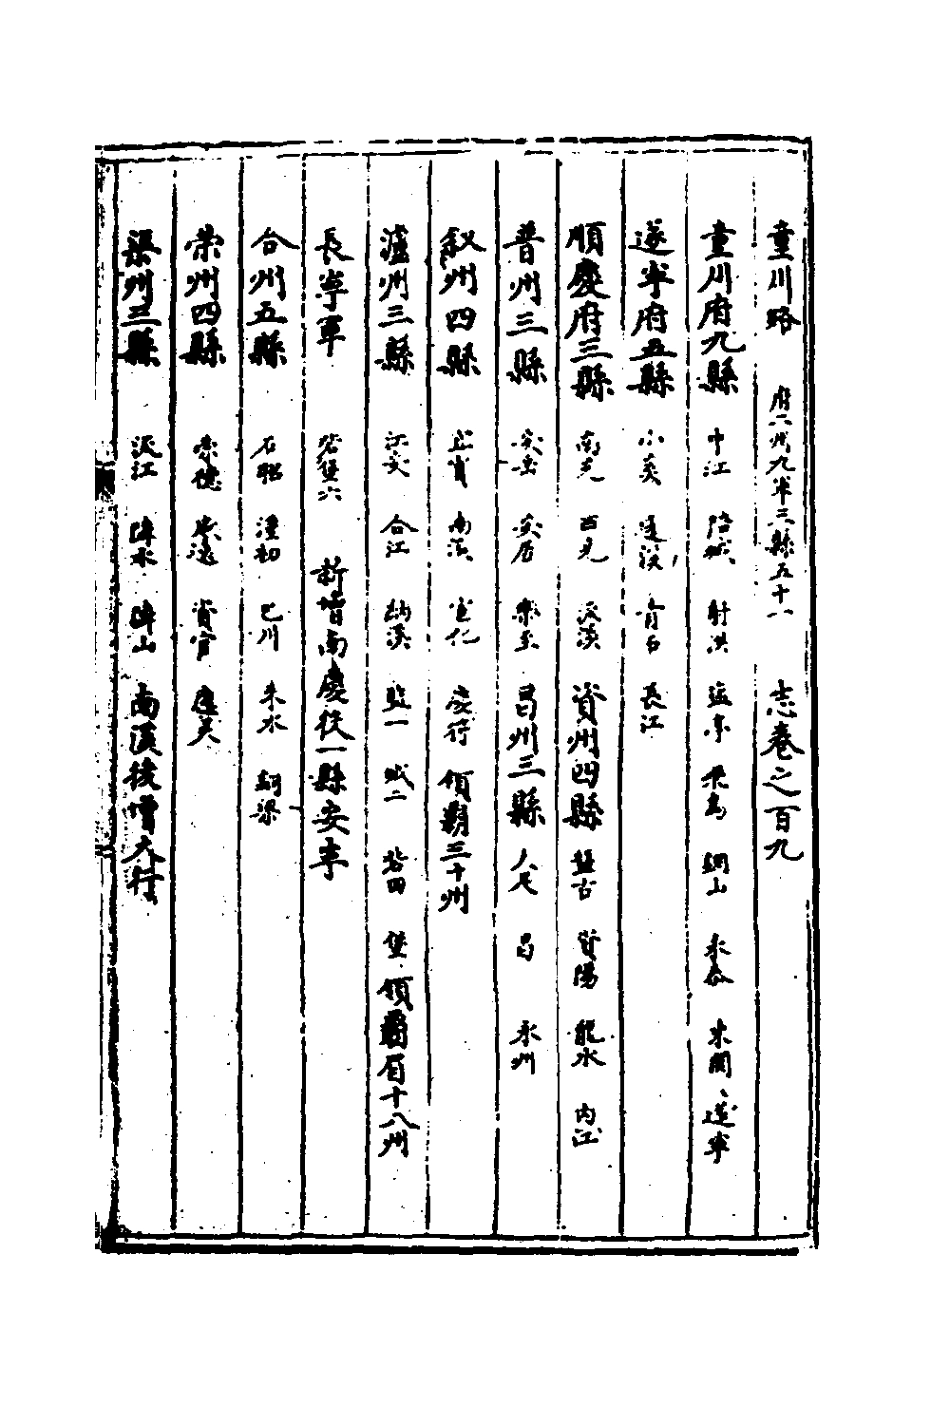 童川路 府六州九軍三縣五十一 志卷之一百九
童川府九縣 中江 涪城 射洪 塩亭 飛烏 銅山 永泰 東関 遂寧
遂寧府五縣 小溪 蓬溪 青石 長江
順慶府三縣 南充 西充 流溪 資州四縣 盤古 資陽 龍水 内江
普州三縣 安岳 安居 樂至 昌州三縣 大足 昌 永川
叙州四縣 宜賓 南溪 宣化 慶符 領羈三十州
瀘州三縣 江安 合江 納溪 監一 城二 砦四 堡 領羈 十八州
長寧軍 砦堡六 新增南慶徙一縣安寧
合州五縣 石照 漢初 巴川 赤水 銅梁
荣州四縣 榮德 威遠 資官 應灵
渠州三縣 流江 隣水 隣山 南溪後增大行